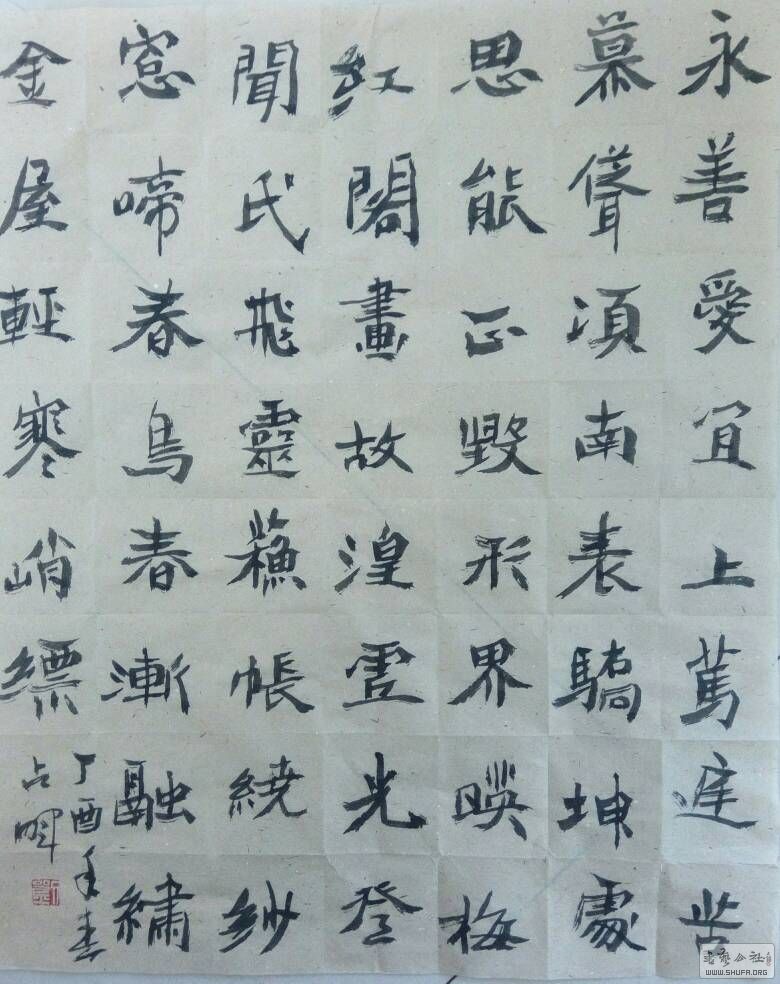 永善愛宜上篤遲苦
慕聳須南表驕坤處
思能正毀形界暎梅
紅閣畫故湟雲光登
聞氏飛靈蘓帳繞紗
窓啼春鳥春漸融繡
金屋輕寒峭縹
丁酉年春
占暉
書藝公社
WWW.SHUFA.ORG